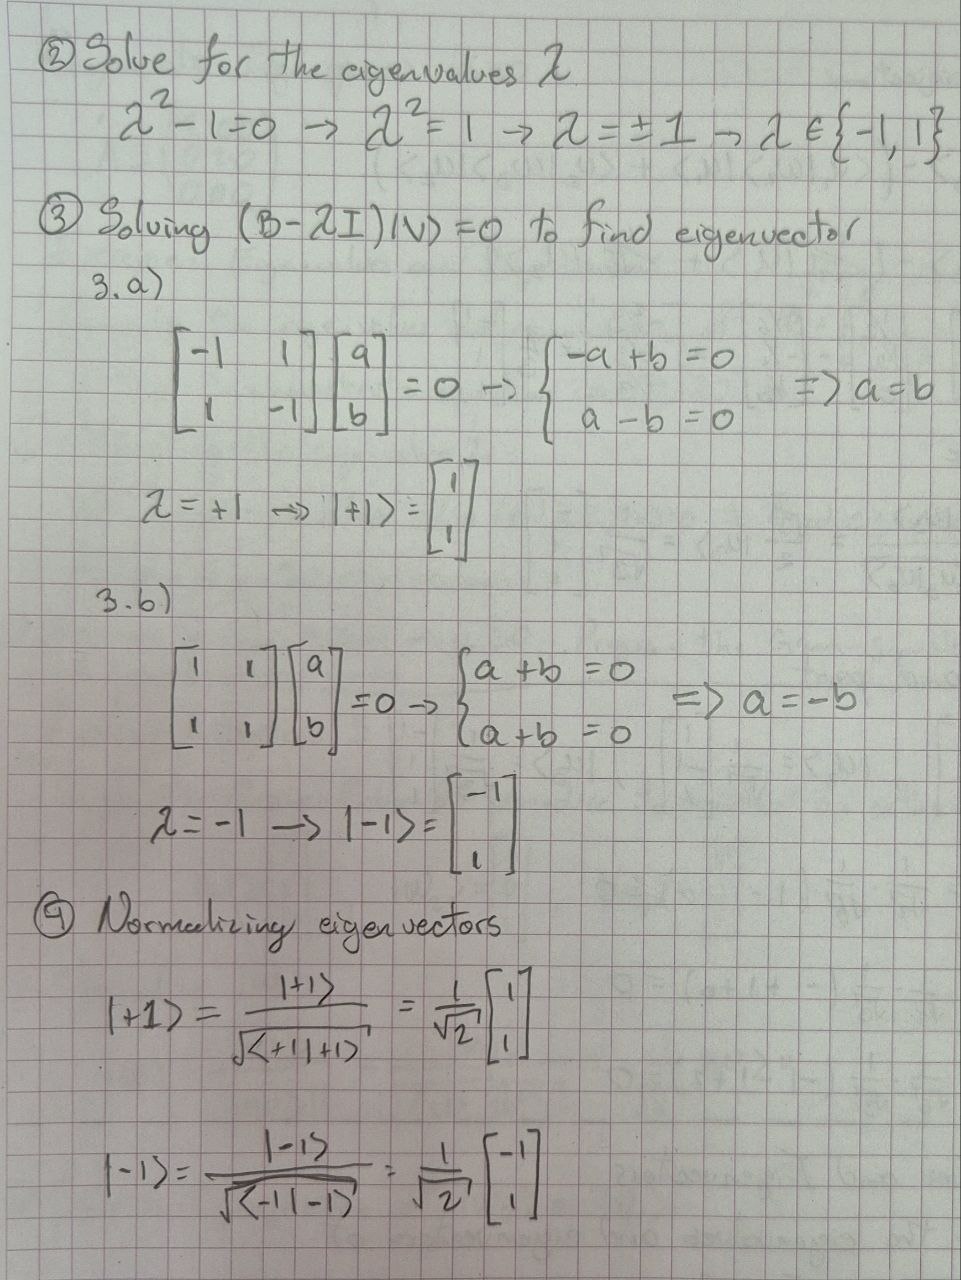 ② Solve for the eigenvalues λ
λ² - 1 = 0 → λ² = 1 → λ = ± 1 → λ ∈ {-1, 1}
③ Solving (B - λI)|V⟩ = 0 to find eigenvector
3.a)
[-1 1; 1 -1] [a; b] = 0 → { -a + b = 0; a - b = 0 ⇒ a = b
λ = +1 → |+1⟩ = [1; 1]
3.b)
[1 1; 1 1] [a; b] = 0 → { a + b = 0; a + b = 0 ⇒ a = -b
λ = -1 → |-1⟩ = [-1; 1]
④ Normalizing eigenvectors
|+1⟩ = |+1⟩ / √⟨+1|+1⟩ = 1/√2 [1; 1]
|-1⟩ = |-1⟩ / √⟨-1|-1⟩ = 1/√2 [-1; 1]